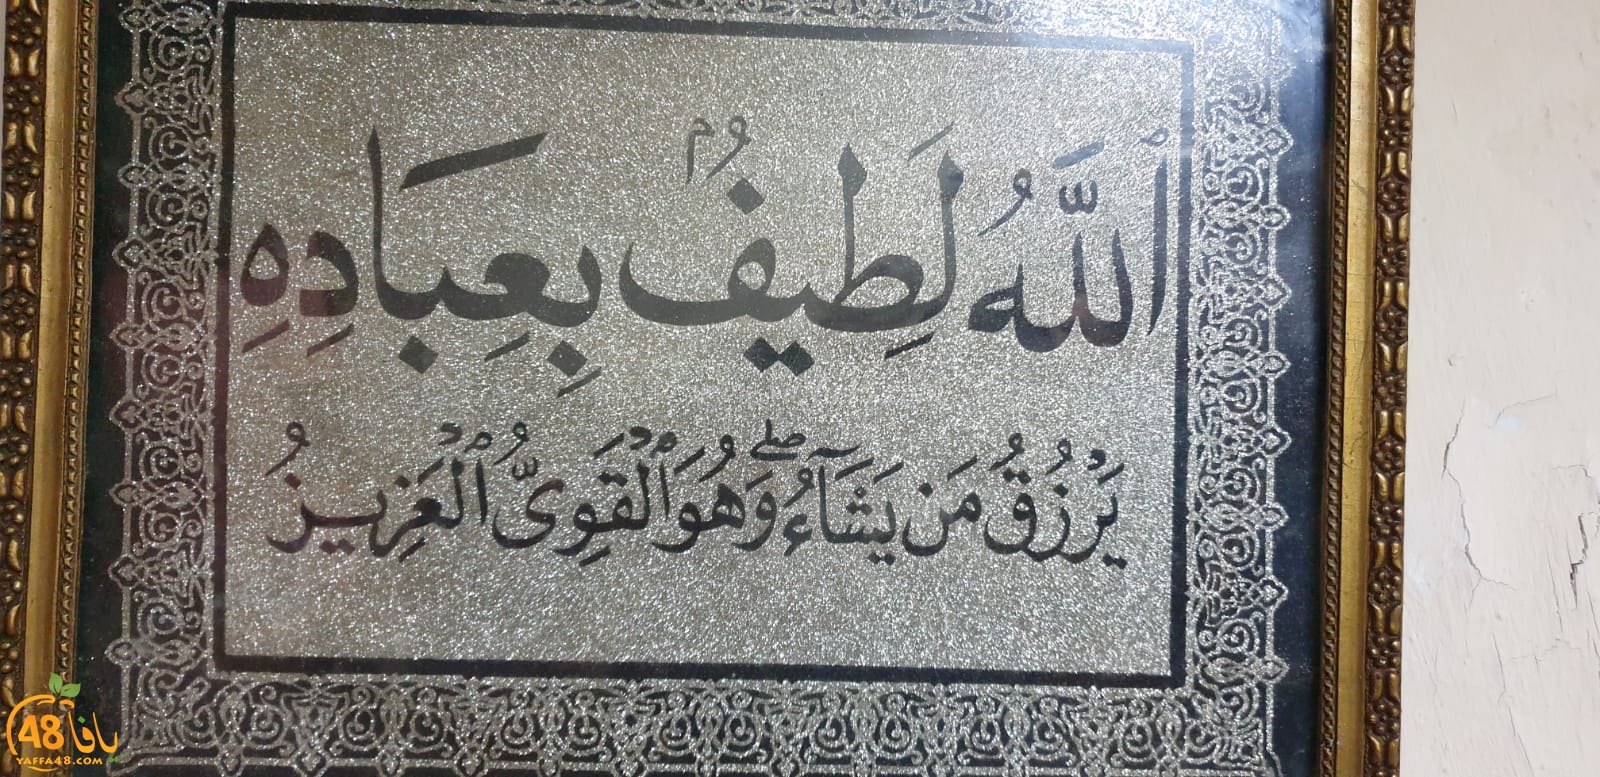 ٱللَّهُ لَطِيفُۢ بِعِبَادِهِ
يَرْزُقُ مَن يَشَآءُ ۖ وَهُوَ ٱلْقَوِىُّ ٱلْعَزِيزُ
يافا 48
YAFFA48.COM